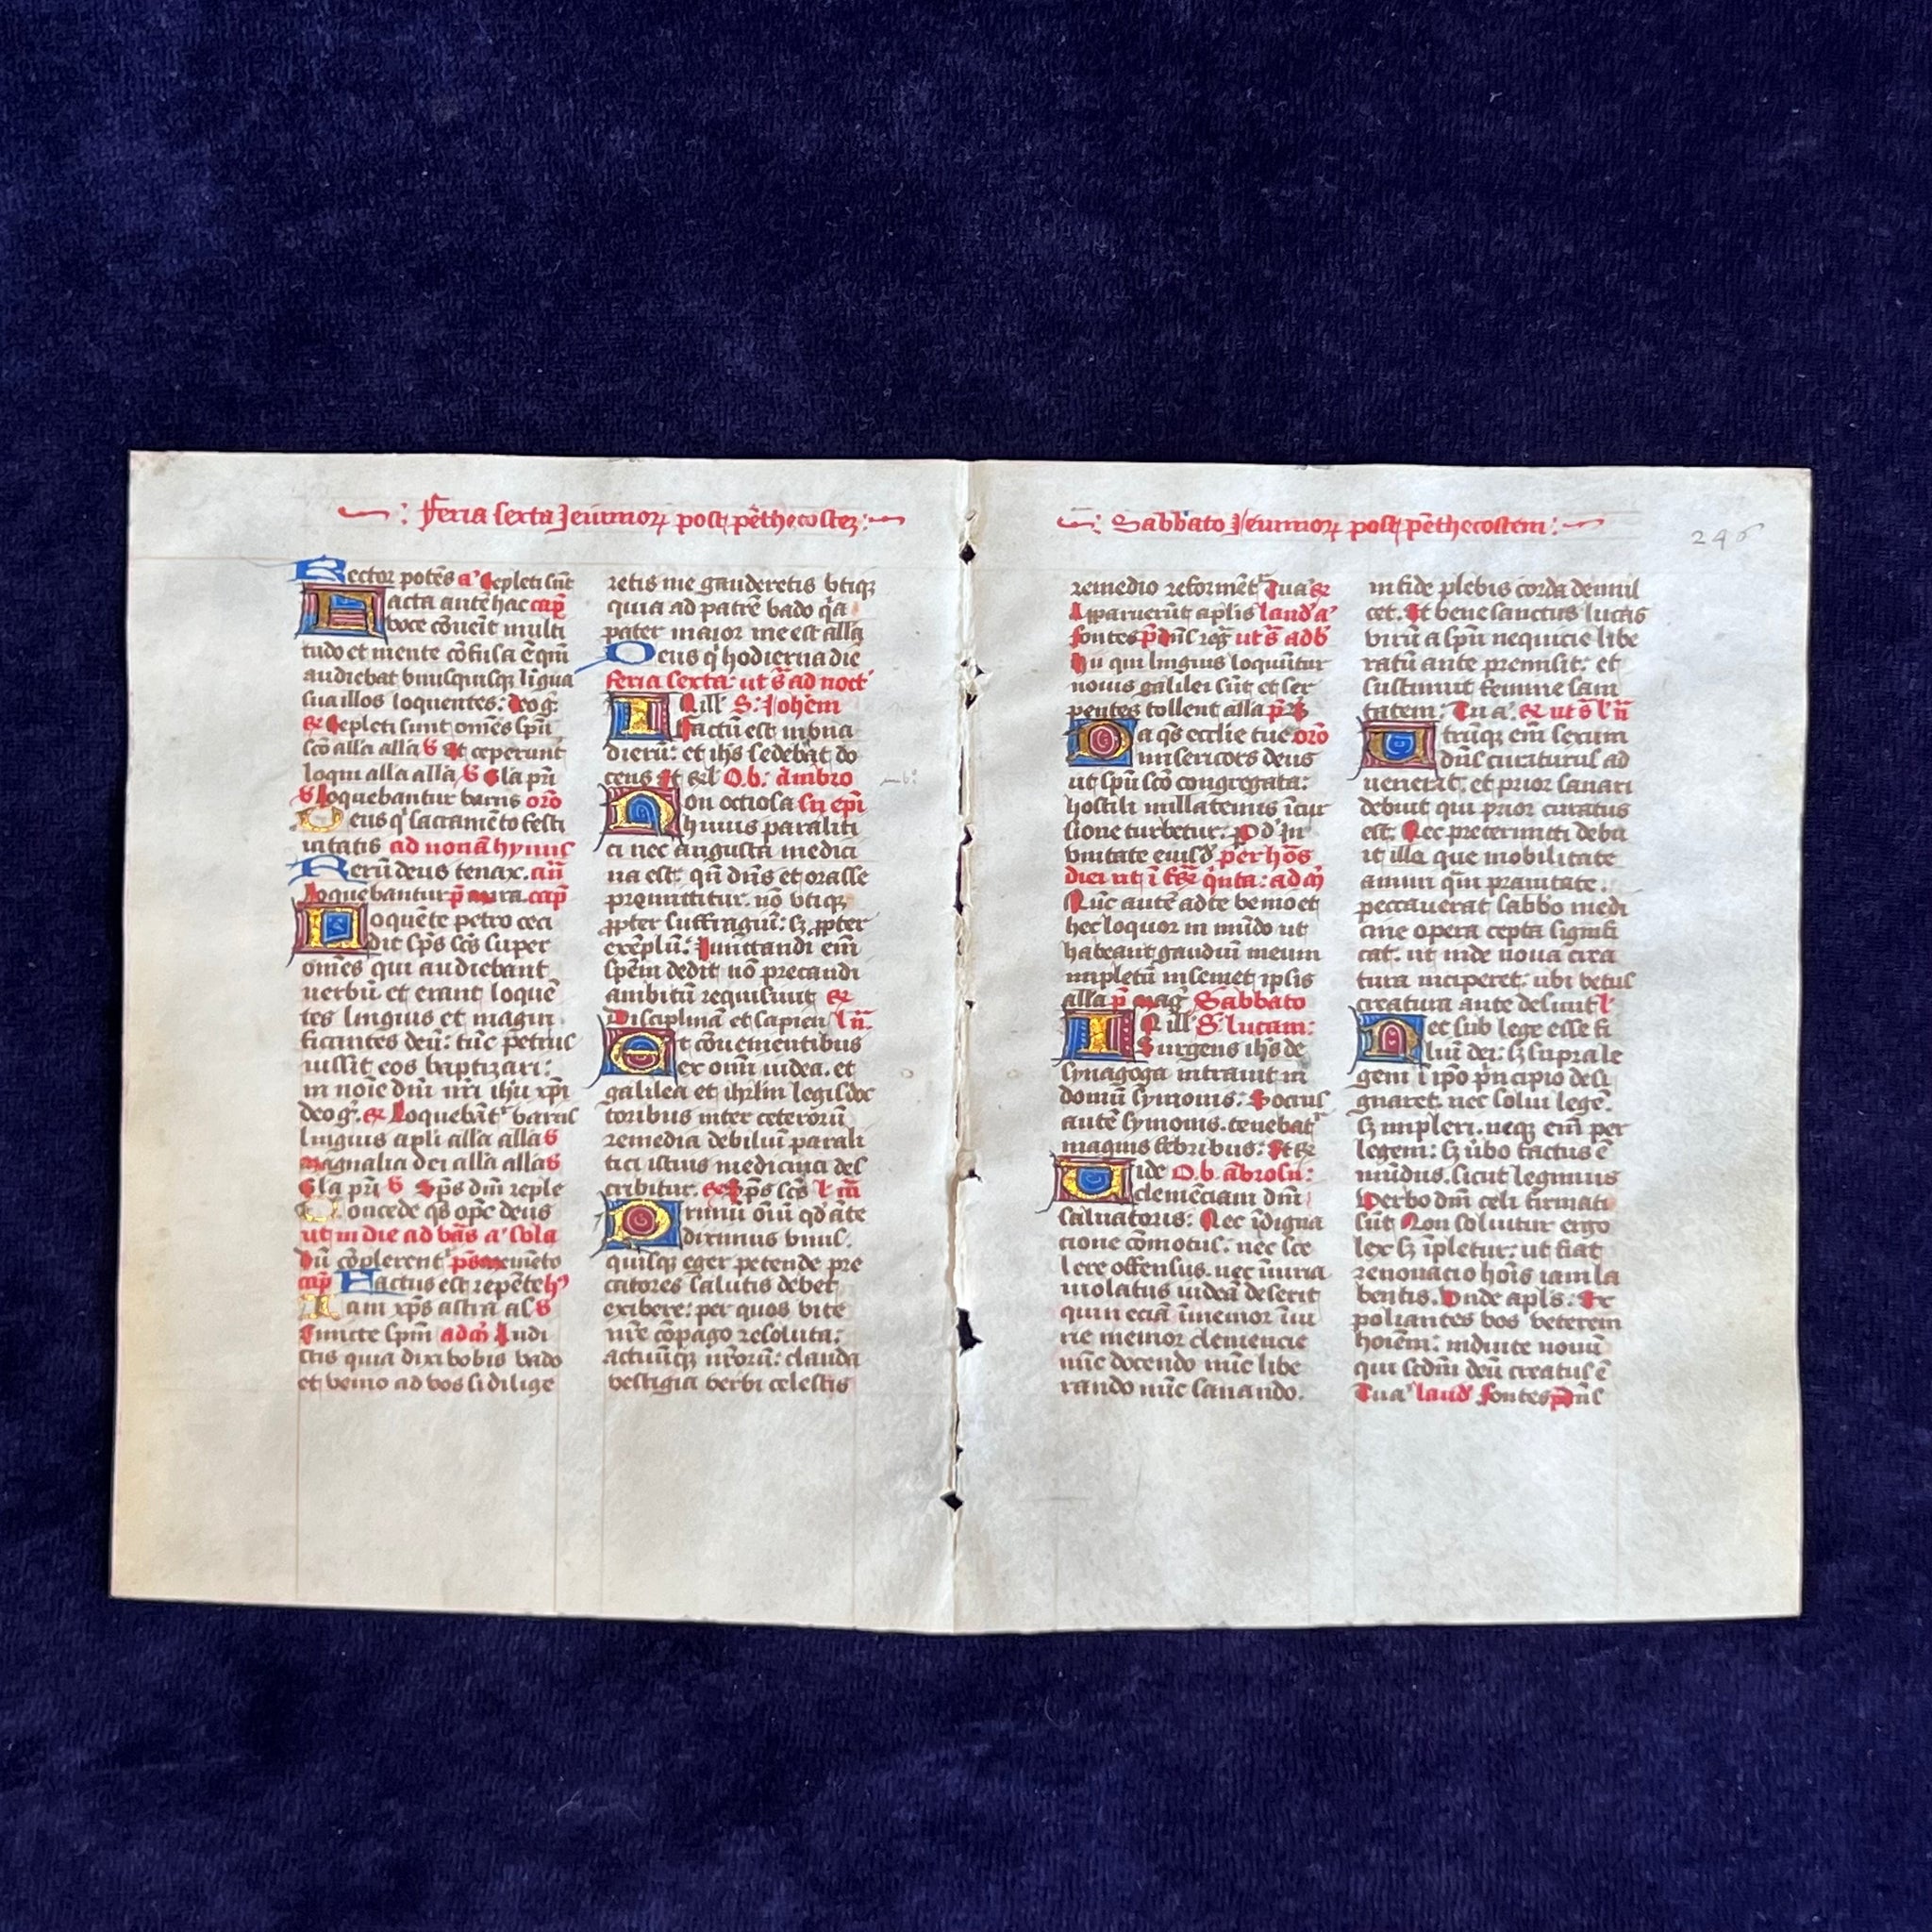 Feria sexta Jeiunioꝝ post pẽthecostez
Rector potẽs a' Repleti sũt
Facta autẽ hac cap̃
voce cõuenit multi
tudo et mente cõfusa ẽ qm̃
audiebat vnusquisq̃ ligua
sua illos loquentes: Deo g̃
Repleti sunt omẽs spũ
sc̃o alla alla Et ceperunt
loqui alla alla Gla pr̃i
Loquebantur variis or̃o
Deus q' sacramẽto festi
uitatis ad nonã hymnus
Rerũ deus tenax. añ
loquebantur p̃ cap̃
Loquẽte petro ceci
dit sp̃s sc̃s super
omẽs qui audiebant
uerbũ et erant loquẽ
tes linguis et magni
ficantes deũ: tũc petrus
iussit eos baptizari:
in noĩe dñi nr̃i ihu xp̃i
deo g̃. Loquebãt' variis
linguis apli alla alla
magnalia dei alla alla
Gla pr̃i Sp̃s dñi reple
Concede q̃s op̃c deus
ut in die ad vãs a' sola
Dũ cõplerent'
cap̃ Factus est repẽte h'
Iam xp̃s astra as
Cuncte sp̃m ad m̃ Audi
stis quia dixi vobis vado
et venio ad vos si dilige
retis me gauderetis vtiq̃
quia ad patrẽ vado q̃a
pater maior me est alla
Deus q' hodierna die
feria sexta: ut s̃ ad noct'
In ill' S: Johẽm
factũ est in vna
dierũ: et ihs sedebat do
cens Et rel' O. b: ambro
Non ociosa sũ ep̃i
huius paraliti
ci nec angusta medici
na est: qñ dñs et orasse
premittitur. nõ vtiq̃
ꝓpter suffragiũ: sꝫ ꝓpter
exẽplũ: Imitandi em̃
spẽm dedit nõ precandi
ambitũ requisiuit
Disciplinã et sapien l' ñ
Et cõuenientibus
ex omni iudea. et
galilea et ihrlm legis doc
toribus inter ceterorũ
remedia debiliũ parali
tici istius medicina des
cribitur. Sp̃s sc̃s l'
Primũ oĩm qd' ãte
diximus vnus.
quisq̃ eger petende pre
catores salutis debet
exibere: per quos vite
nr̃e cõpago resoluta:
actuũq̃ nr̃orũ: clauda
vestigia verbi celestis
Sabbato Jeiunioꝝ post pẽthecostem
246
remedio reformẽt' Tua
Apparuerũt aplis laud' a'
fontes ut s̃ ad b'
Hii qui linguis loquũtur
nouis galilei sũt et ser
pentes tollent alla
Da q̃s ecclie tue or̃o
misericors deus
ut spũ sc̃o congregata:
hostili nullatenus ĩcur
sione turbetur: P d' In
vnitate eiusd' per hõs
diei ut ĩ quinta: ad m̃
Nũc autẽ ad te venio et
hec loquor in mũdo ut
habeant gaudiũ meum
impletũ in semet ipsis
alla p̃ mag̃ Sabbato
In ill' S. lucam:
Surgens ihs de
synagoga intrauit in
domũ symonis: Socrus
autẽ symonis. tenebat'
magnis febribus: Et
Vide O. b. ãbrosii:
clemẽciam dñi
saluatoris: Nec ĩdigna
cione cõmotus. nec sce
lere offensus. nec iniuria
uiolatus iudeã deserit
quin eciã ĩmemor iniu
rie memor clemencie
nũc docendo nũc libe
rando nũc sanando.
infide plebis corda demul
cet. Et bene sanctus lucas
virũ a spũ nequicie libe
ratũ ante premisit: et
substituit femine sani
tatem: Tu a. ut s̃ l' ñ
Vtrũq̃ em̃ sexum
dñs curaturus ad
uenerat. et prior sanari
debuit qui prior curatus
est. Nec pretermitti debu
it illa que mobilitate
animi q̃m prauitate.
peccauerat sabbo medi
cine opera cepta signifi
cat. ut inde noua crea
tura inciperet: ubi vetus
creatura ante desiuit l'
Nec sub lege esse fi
liũ dei: sꝫ supra le
gem ĩ ip̃o p̃ncipio desi
gnaret. nec solui legẽ.
sꝫ impleri. neq̃ em̃ per
legem: sꝫ v̾bo factus ẽ
mũdus. sicut legimus
Verbo dñi celi firmati
sũt Non soluitur ergo
lex sꝫ ĩpletur: ut fiat
renouacio hoĩs iam la
bentis. Vnde apls: Ex
poliantes vos veterem
hoĩem: induite nouũ
qui scdm̃ deũ creatus ẽ
Tua' laud' fontes